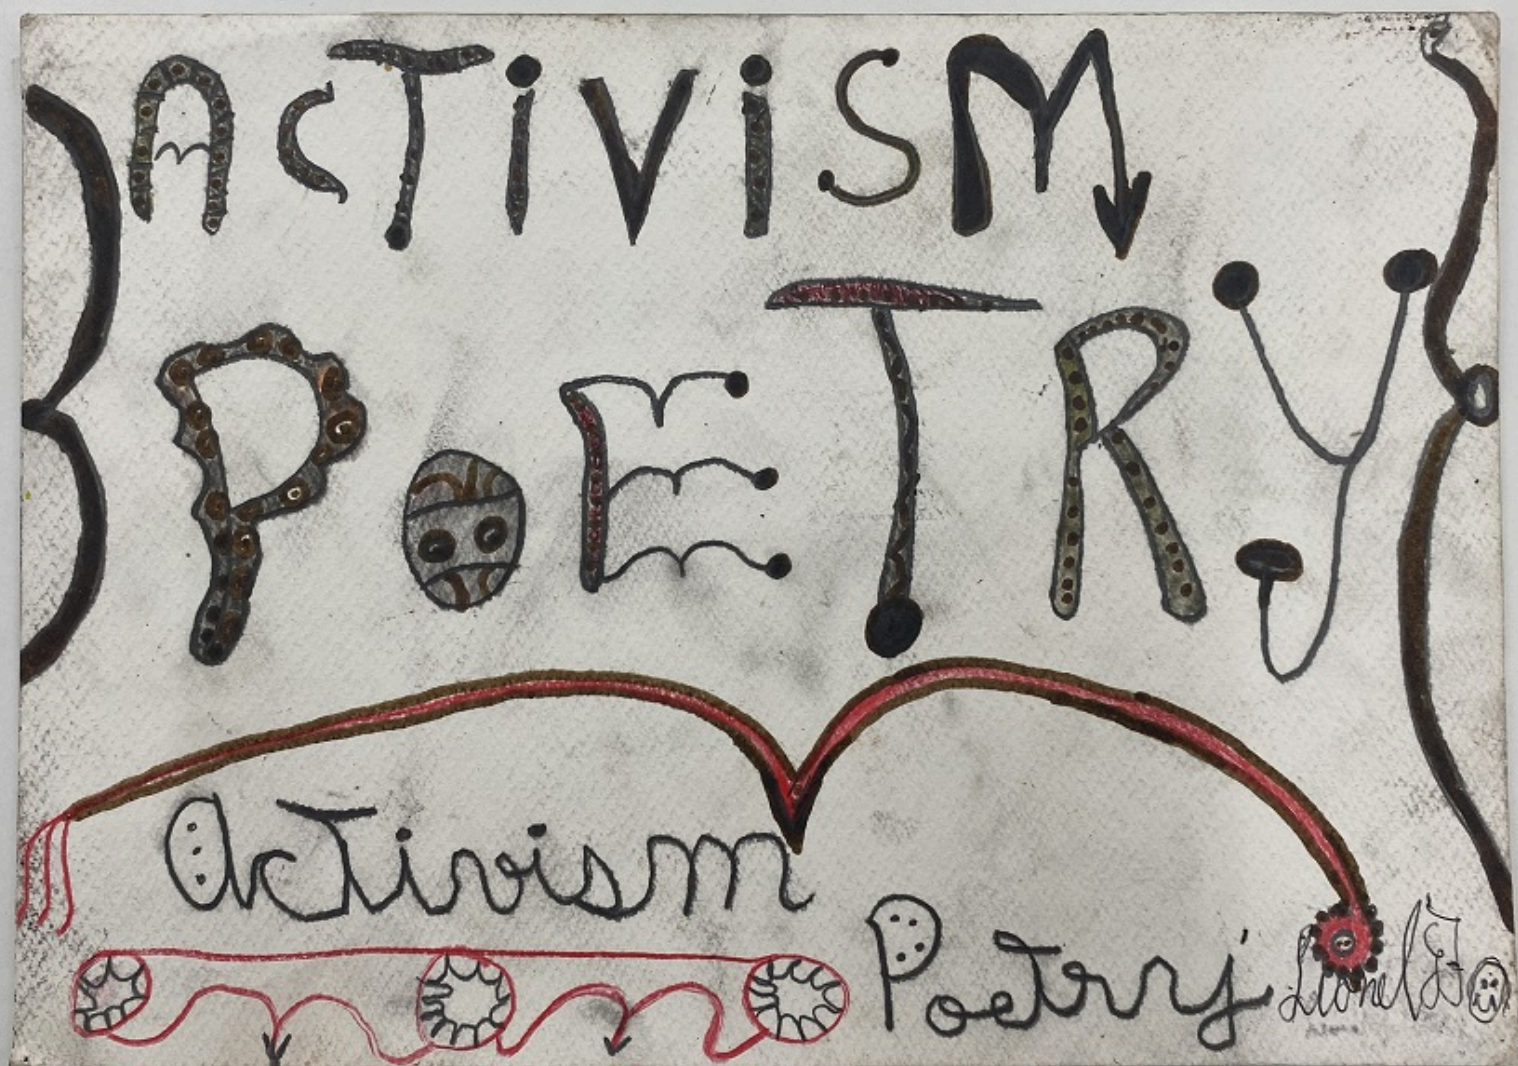 AcTiViSM
PoETRY
AcTivism
Poetry
Lionel